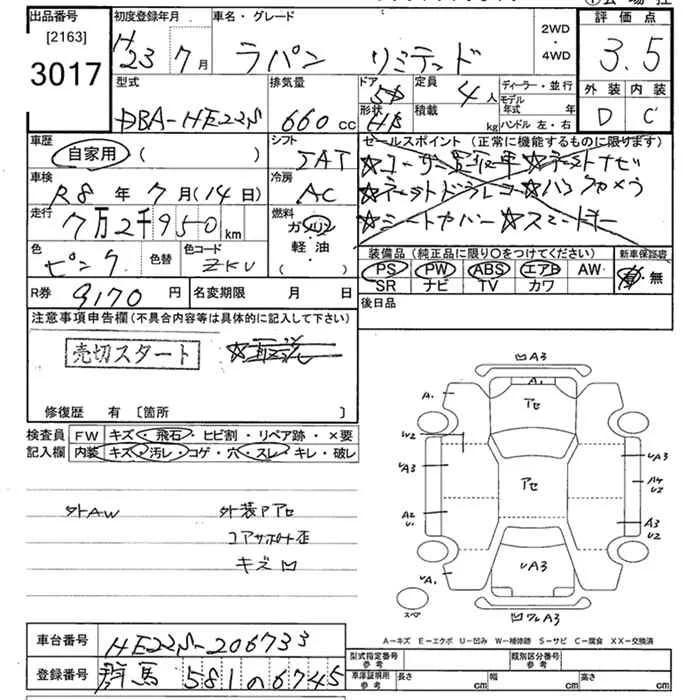 出品番号
[2163]
3017
初度登録年月
H23 7月
車名・グレード
ラパン リミテッド
2WD
・
4WD
評価点
3.5
外装 内装
D C
型式
DBA-HE22S
排気量
660 cc
ドア
5D
形状
H/B
定員
4人
積載
kg
ディーラー・並行
モデル
年式 年
ハンドル 左・右
車歴
自家用 ( )
シフト
IAT
セールスポイント (正常に機能するものに限ります)
車検
R8年7月(14日)
冷房
AC
走行
7万2千950km
燃料
ガソリン
軽・油
( )
色
ピンク
色替
色コード
ZKU
装備品 (純正品に限り〇をつけてください)
PS PW ABS エアB AW
SR ナビ TV カワ
新車保証書
有・無
R券 9170円
名変期限 月 日
後日品
注意事項申告欄(不具合内容等は具体的に記入して下さい)
売切スタート
修復歴 有 〔箇所 〕
検査員
記入欄
FW キズ・飛石・ヒビ割・リペア跡・×要
内装 キズ・汚レ・コゲ・穴・スレ・キレ・破レ
外AW
外装Pアセ
コアサポート歪
キズ凹
凹A3
A1
A1
アセ
W2
UA3
UA3
アセ
A4
U2
A2
U1
A3
U2
UA1
UA3
スペア
凹ワレA3
A－キズ E－エクボ U－凹み W－補修跡 S－サビ C－腐食 XX－交換済
車台番号
HE22S-206733
登録番号
群馬 581 の 6745
型式指定番号
参考
類別区分番号
参考
車庫証明所
参考
長さ cm
幅 cm
高さ cm